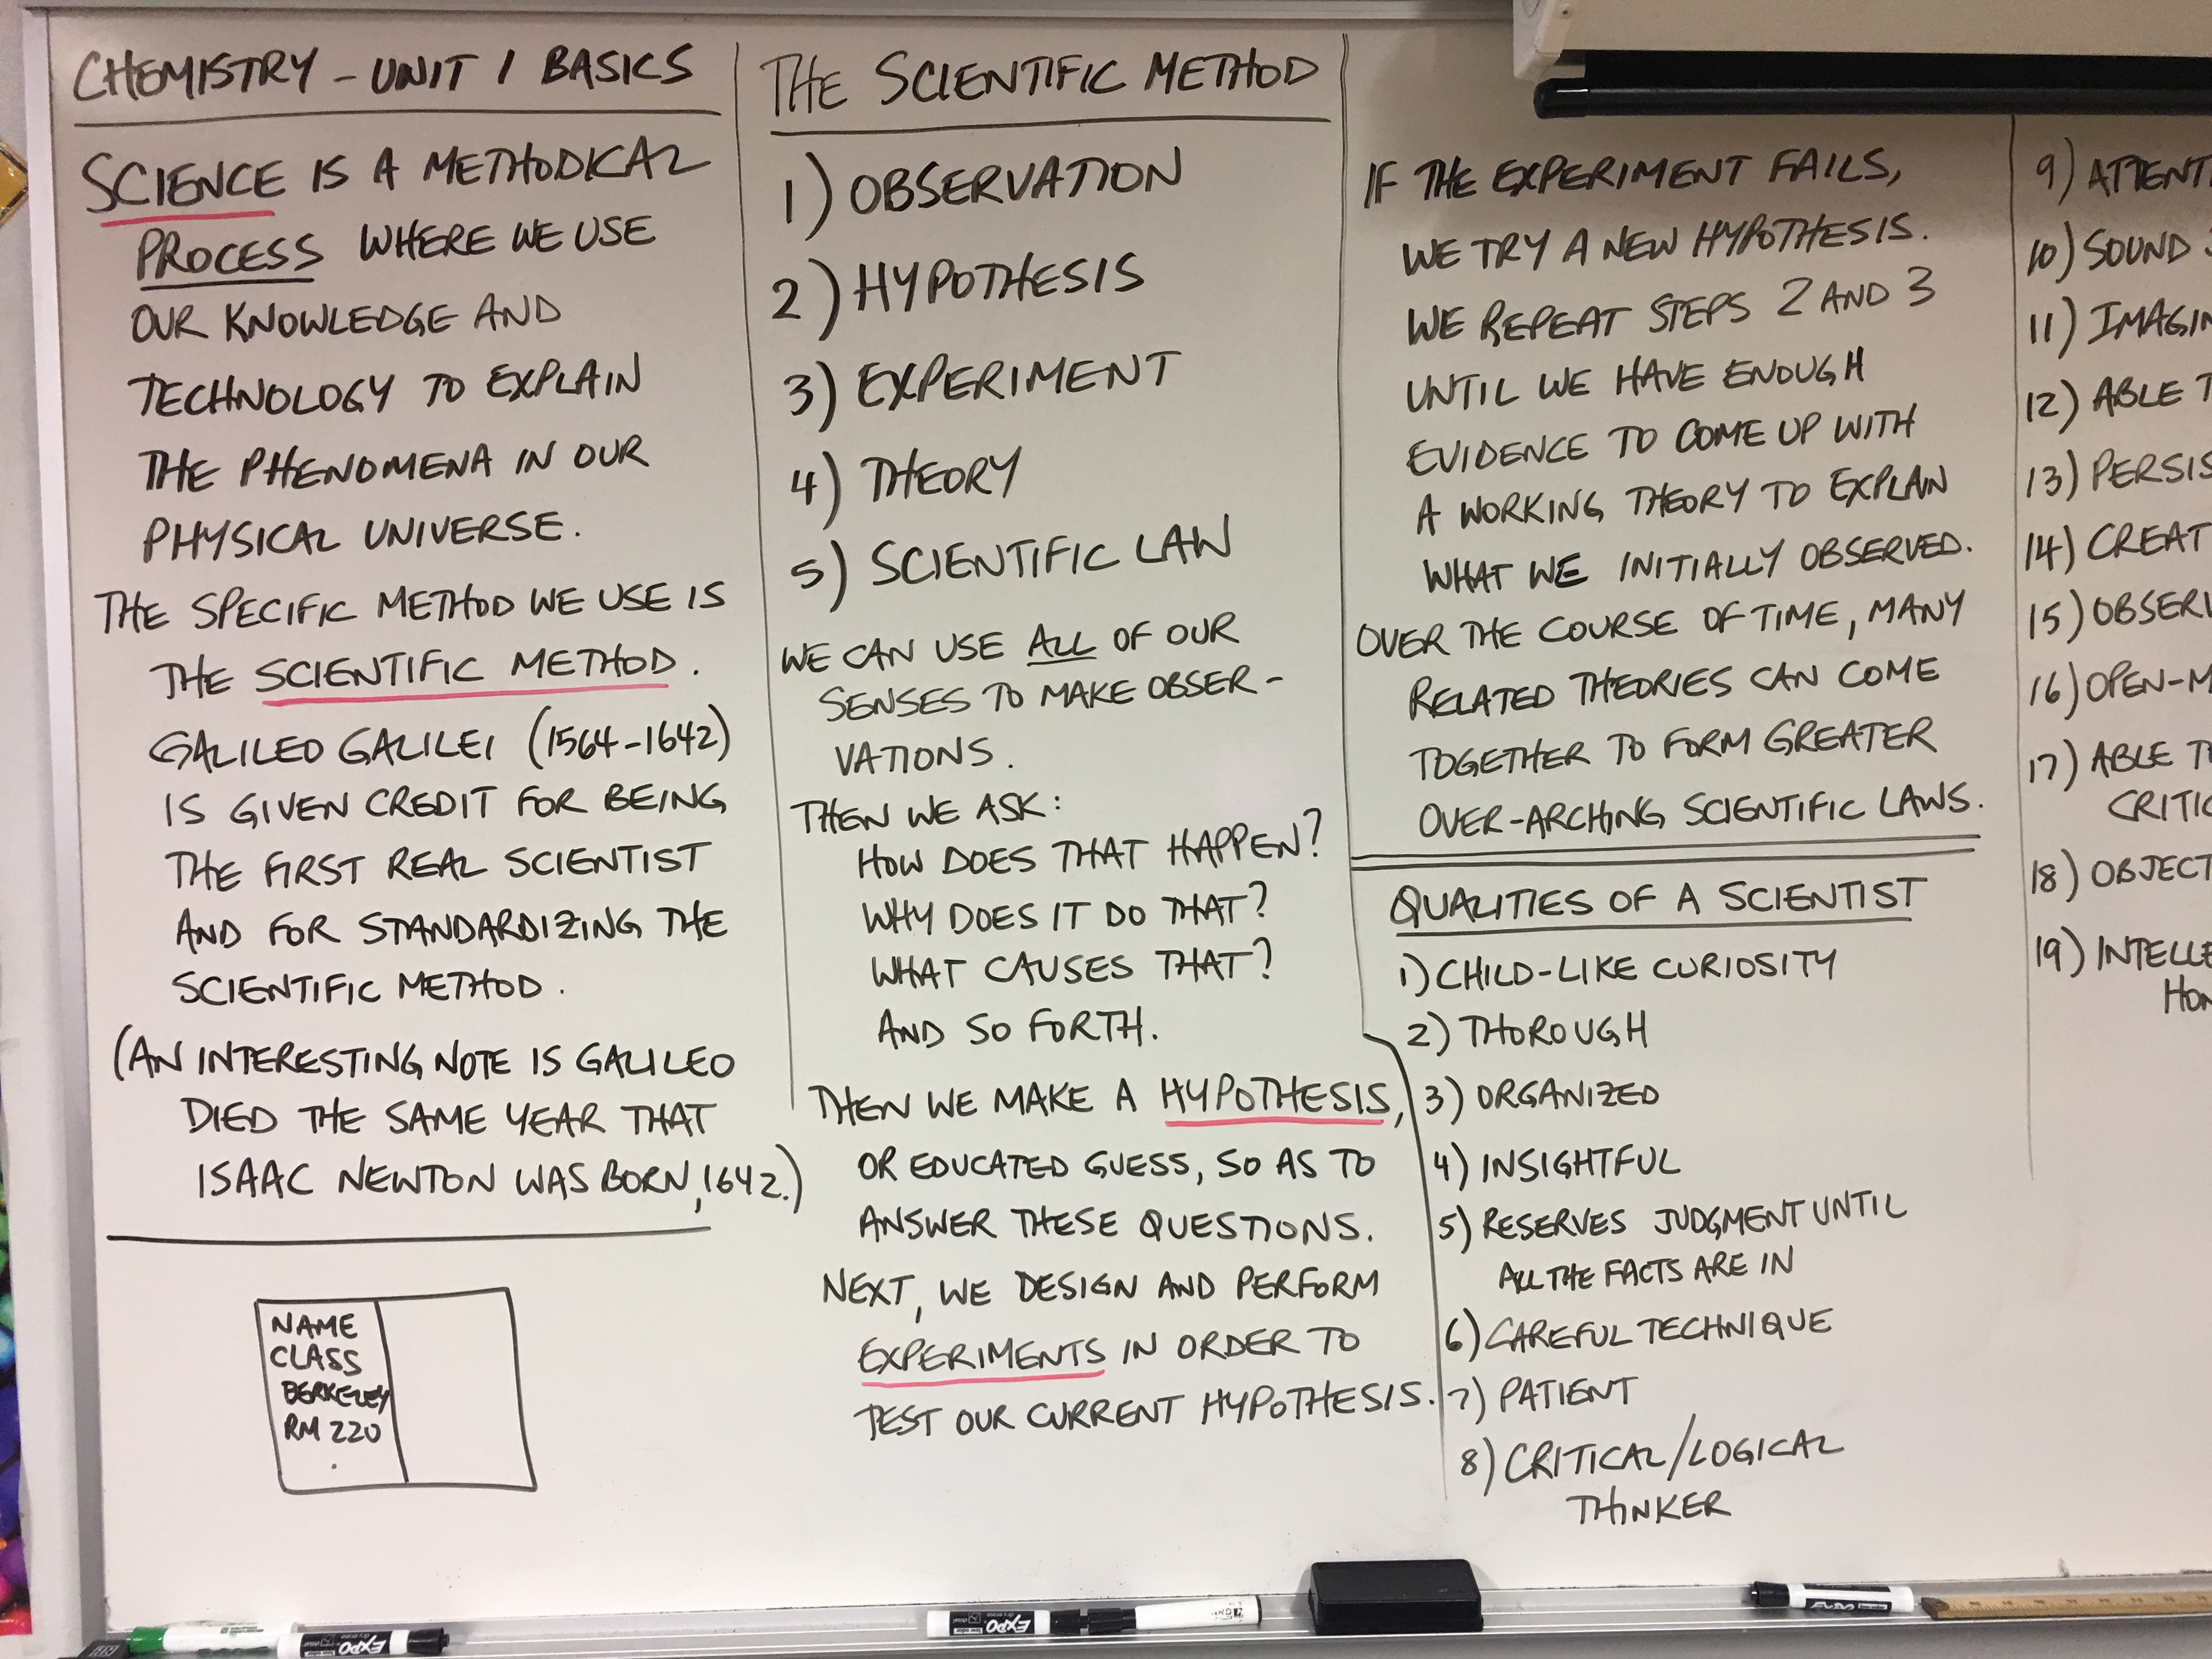 CHEMISTRY - UNIT 1 BASICS
SCIENCE IS A METHODICAL
PROCESS WHERE WE USE
OUR KNOWLEDGE AND
TECHNOLOGY TO EXPLAIN
THE PHENOMENA IN OUR
PHYSICAL UNIVERSE.
THE SPECIFIC METHOD WE USE IS
THE SCIENTIFIC METHOD.
GALILEO GALILEI (1564-1642)
IS GIVEN CREDIT FOR BEING
THE FIRST REAL SCIENTIST
AND FOR STANDARDIZING THE
SCIENTIFIC METHOD.
(AN INTERESTING NOTE IS GALILEO
DIED THE SAME YEAR THAT
ISAAC NEWTON WAS BORN, 1642.)
NAME
CLASS
BERKELEY
RM 220
THE SCIENTIFIC METHOD
1) OBSERVATION
2) HYPOTHESIS
3) EXPERIMENT
4) THEORY
5) SCIENTIFIC LAW
WE CAN USE ALL OF OUR
SENSES TO MAKE OBSER-
VATIONS.
THEN WE ASK:
HOW DOES THAT HAPPEN?
WHY DOES IT DO THAT?
WHAT CAUSES THAT?
AND SO FORTH.
THEN WE MAKE A HYPOTHESIS,
OR EDUCATED GUESS, SO AS TO
ANSWER THESE QUESTIONS.
NEXT, WE DESIGN AND PERFORM
EXPERIMENTS IN ORDER TO
TEST OUR CURRENT HYPOTHESIS.
IF THE EXPERIMENT FAILS,
WE TRY A NEW HYPOTHESIS.
WE REPEAT STEPS 2 AND 3
UNTIL WE HAVE ENOUGH
EVIDENCE TO COME UP WITH
A WORKING THEORY TO EXPLAIN
WHAT WE INITIALLY OBSERVED.
OVER THE COURSE OF TIME, MANY
RELATED THEORIES CAN COME
TOGETHER TO FORM GREATER
OVER-ARCHING SCIENTIFIC LAWS.
QUALITIES OF A SCIENTIST
1) CHILD-LIKE CURIOSITY
2) THOROUGH
3) ORGANIZED
4) INSIGHTFUL
5) RESERVES JUDGMENT UNTIL
ALL THE FACTS ARE IN
6) CAREFUL TECHNIQUE
7) PATIENT
8) CRITICAL/LOGICAL
THINKER
9) ATTENT
10) SOUND
11) IMAGIN
12) ABLE T
13) PERSIS
14) CREAT
15) OBSERV
16) OPEN-M
17) ABLE T
CRITIC
18) OBJECT
19) INTELLE
HON
EXPO
EXPO
EXPO